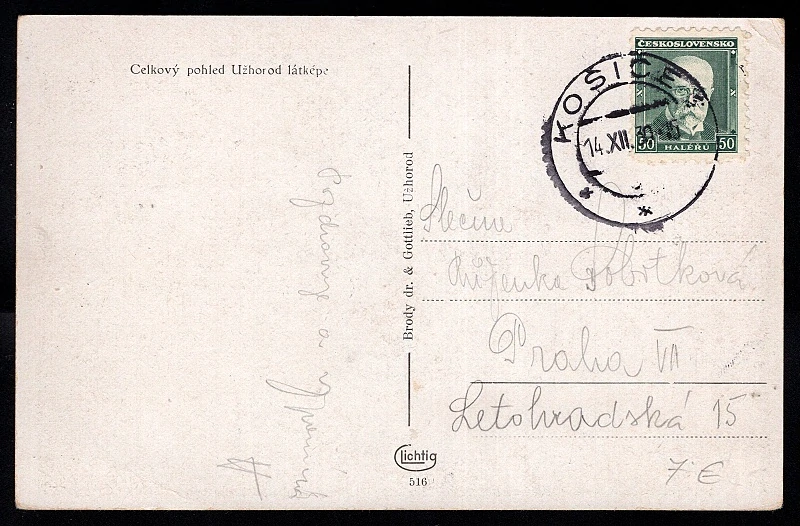 Celkový pohled Užhorod látképe
ČESKOSLOVENSKO
50 HALÉŘŮ 50
KOŠICE
14.XII.30
Pozdravuje a
vzpomíná
Brody dr. & Gottlieb, Užhorod
Slečna
Růženka Dobrtková
Praha VII
Letohradská 15
7 €
Lichtig
516